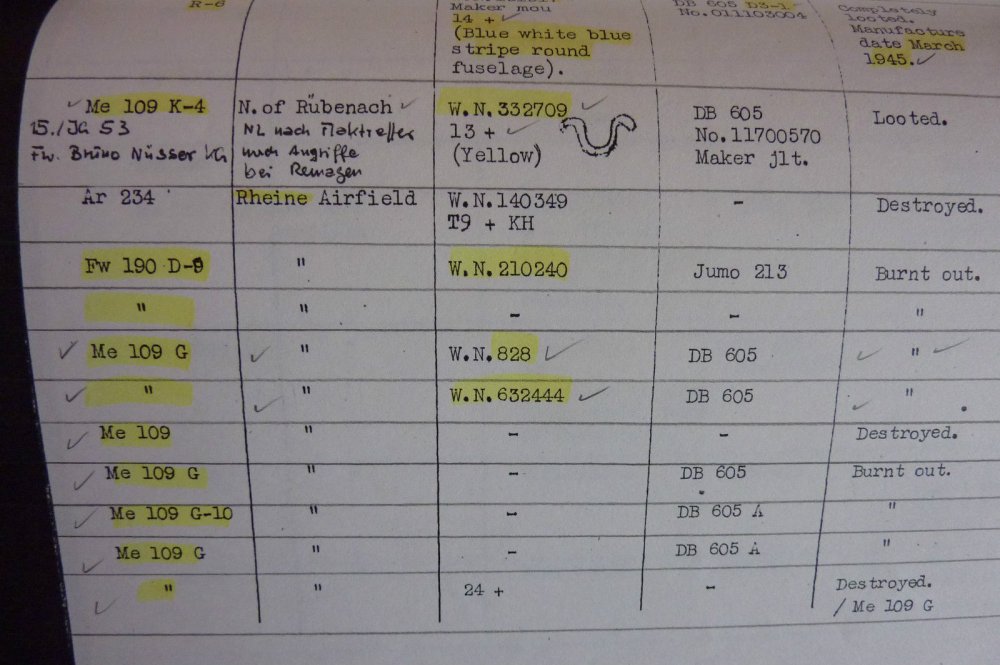 R-6
Maker mou
14 +
(Blue white blue
stripe round
fuselage).
DB 605 D3-1
No.011103004
Completely
looted.
Manufacture
date March
1945.
Me 109 K-4
15./JG 53
Fw. Bruno Nüsser
N. of Rübenach
NL nach Flaktreffer
nach Angriffe
bei Remagen
W.N.332709
13 +
(Yellow)
DB 605
No.11700570
Maker jlt.
Looted.
Ar 234
Rheine Airfield
W.N.140349
T9 + KH
-
Destroyed.
Fw 190 D-9
"
W.N.210240
Jumo 213
Burnt out.
"
"
-
-
"
Me 109 G
"
W.N.828
DB 605
"
"
"
W.N.632444
DB 605
"
Me 109
"
-
-
Destroyed.
Me 109 G
"
-
DB 605
Burnt out.
Me 109 G-10
"
-
DB 605 A
"
Me 109 G
"
-
DB 605 A
"
"
"
24 +
-
Destroyed.
/ Me 109 G